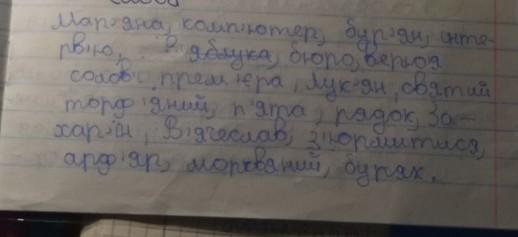 Мар'яна, комп'ютер, бур'ян, інте-
рв'ю, В'яблука, бюро, верф'ю
солов'ї, прем'єра, Лук'ян, святий
торф'яний, п'ята, рядок, За-
хар'їн, В'ячеслав, з'юрмитися,
арф'яр, морквяний, буряк.